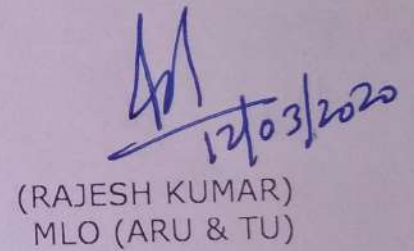 12/03/2020
(RAJESH KUMAR)
MLO (ARU & TU)